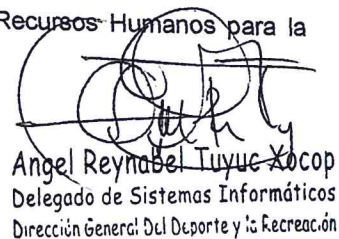 Recursos Humanos para la
Angel Reynabel Tuyuc Xocop
Delegado de Sistemas Informáticos
Dirección General Del Deporte y la Recreación